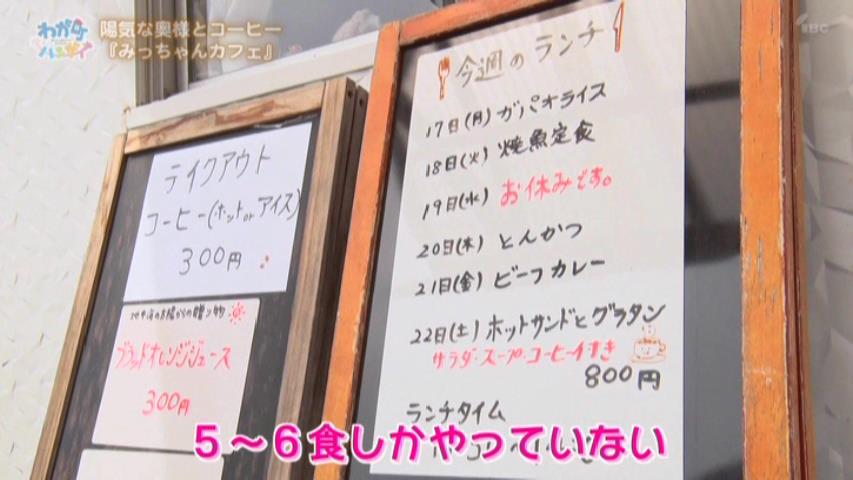 わが町
ハエサイ
陽気な奥様とコーヒー
『みっちゃんカフェ』
IBC
テイクアウト
コーヒー(ホット or アイス)
300円
地中海の太陽からの贈り物
ブラッドオレンジジュース
300円
今週のランチ
17日(月) ガパオライス
18日(火) 焼魚定食
19日(水) お休みです。
20日(木) とんかつ
21日(金) ビーフカレー
22日(土) ホットサンドとグラタン
サラダ・スープ・コーヒー付き
800円
ランチタイム
5~6食しかやっていない